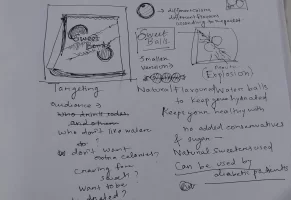 Sweet
Balls
different colours
different flavours
according to segment
Sweet
Balls
Smaller
version
(Explosion)
Targeting
audience →
Who don't like water
don't want
extra calories?
Craving for
sweet?
Want to be
hydrated?
Natural Flavoured Water balls
to keep you hydrated
Keeps you healthy with
no added conservatives
& sugar —
Natural sweetners used
Can be used by
diabetic patients